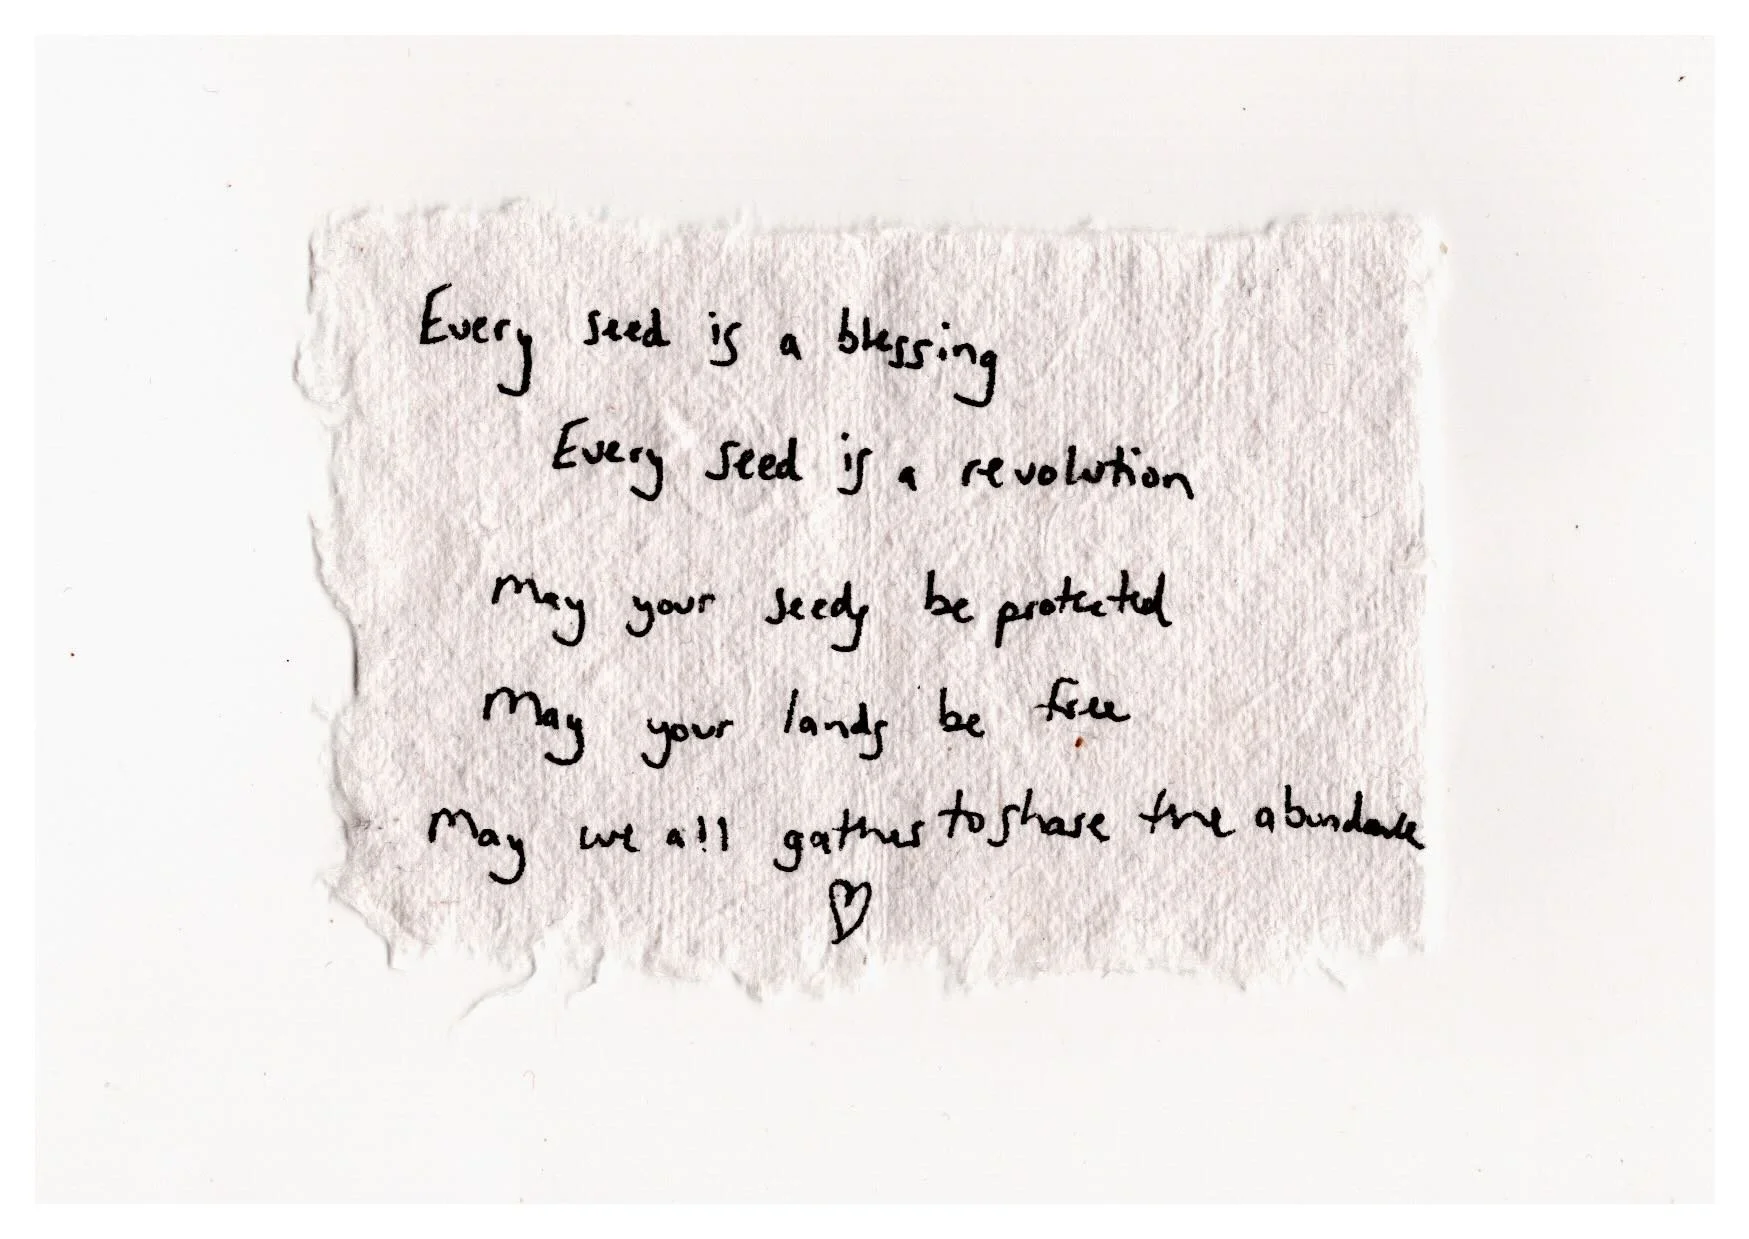 Every seed is a blessing
Every seed is a revolution
May your seeds be protected
May your lands be free
May we all gather to share the abundance